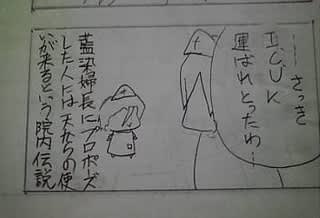 ──さっき
I.C.Uに
運ばれとったわ…
藍染婦長にプロポーズ
した人には天からの使
いが来るという院内伝説